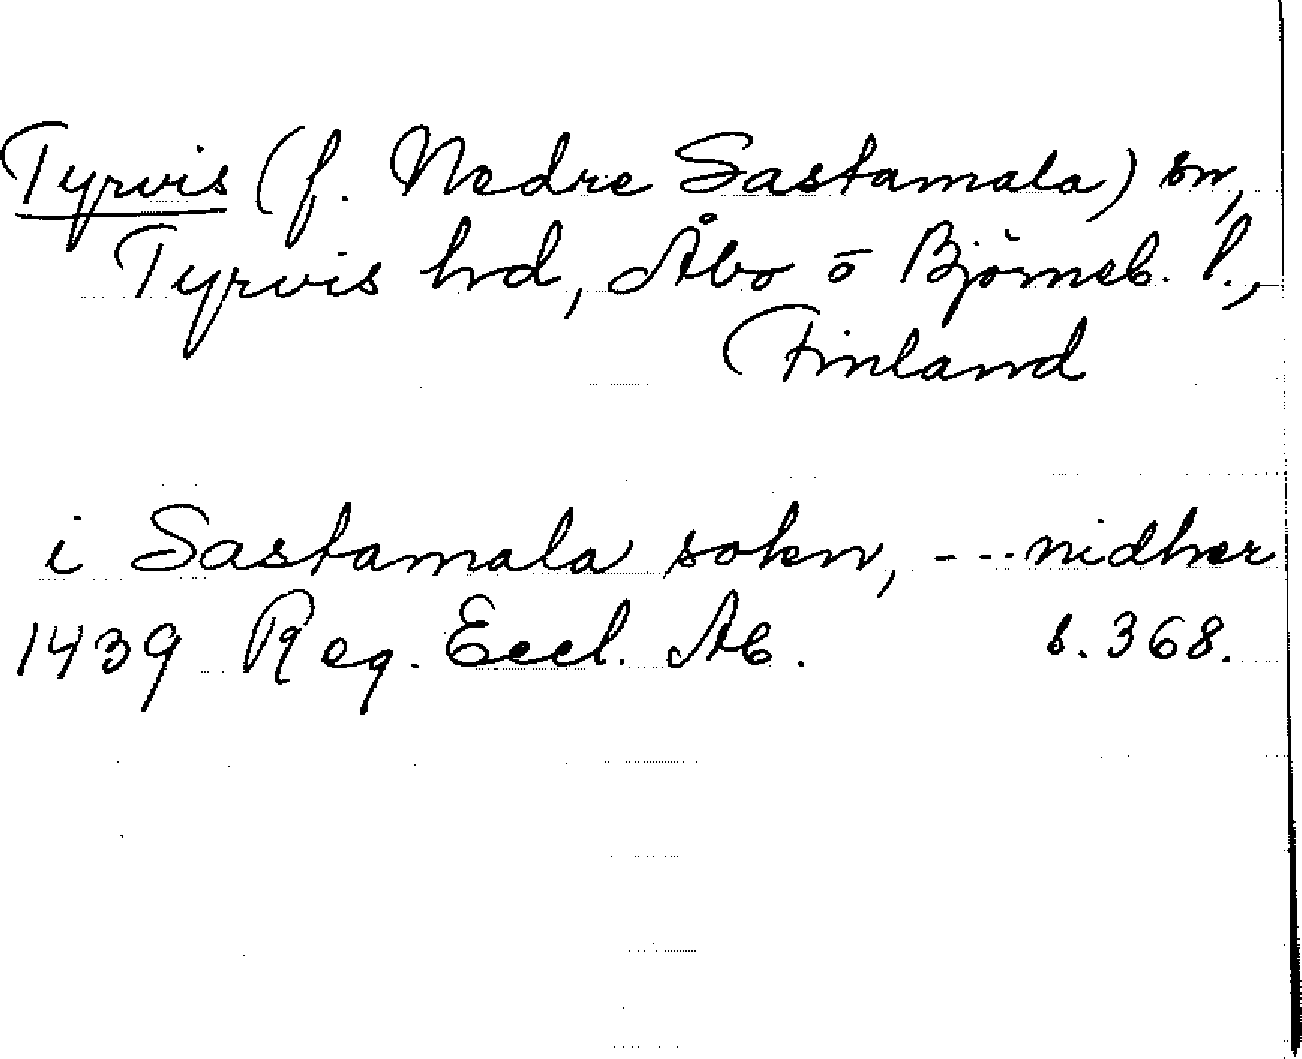 Tyrvis (f. Nedre Sastamala) sn,
Tyrvis hd, Åbo o Björneb. l.,
Finland
i Sastamala sokn, --- nidher
1439 Reg. Eccl. Ab. s. 368.